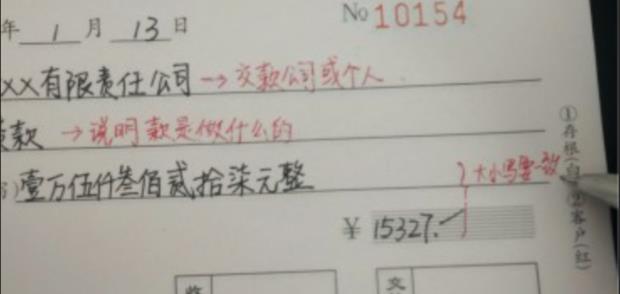 年 1 月 13 日 No 10154
XX有限责任公司 →交款公司或个人
款 →说明款是做什么的
壹万伍仟叁佰贰拾柒元整 大小写要一致
¥ 15327.-
交
①存根(白) ②客户(红)